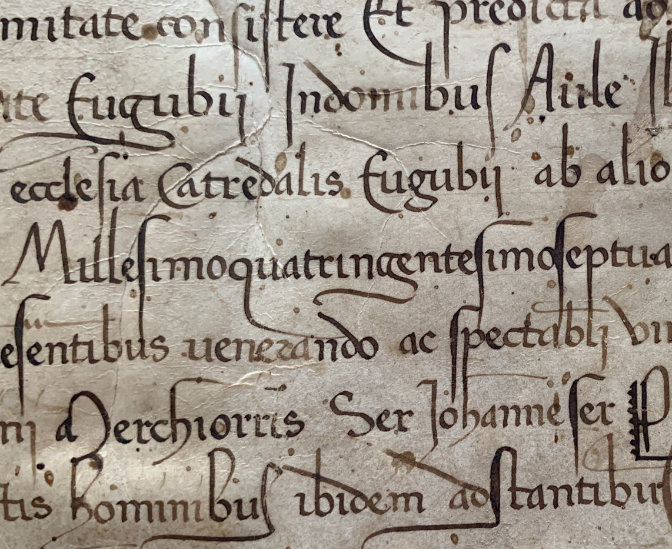 mitate consistere Et predicta ad
Eugubij Indomibus Aule
ecclesia Catredalis Eugubij ab alio
Millesimoquatringentesimoseptua
esentibus uenerando ac spectabilj
Ser Johanne ser
tis hominibus ibidem adstantibus